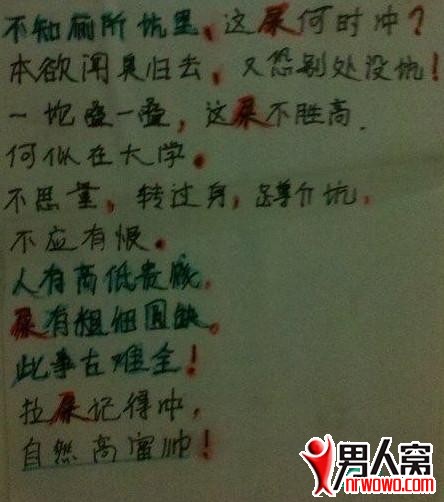 不知厕所坑里，这屎何时冲？
本欲闻臭归去，又恐别处没坑！
一坨叠一叠，这屎不胜高.
何似在大学。
不思量，转过身，蹲个坑，
不应有恨。
人有高低贵贱，
屎有粗细圆缺。
此事古难全！
拉屎记得冲，
自然高富帅！
男人窝
nrwowo.com